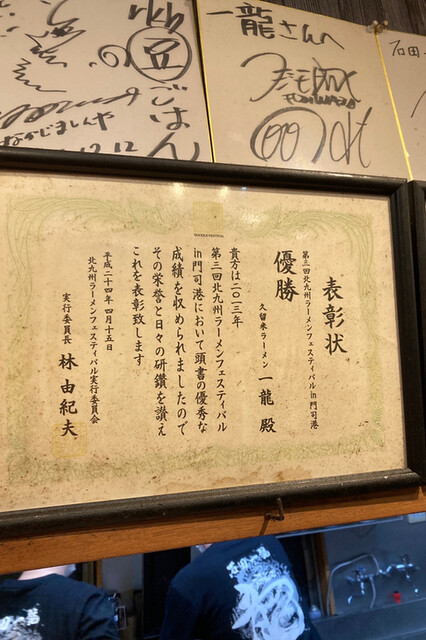 一龍さんへ
豆ごはん
なかじましんや
石田
NOODLE FESTIVAL
表彰状
第三回北九州ラーメンフェスティバルin門司港
優勝
久留米ラーメン 一龍 殿
貴方は二〇一三年
第三回北九州ラーメンフェスティバル
in門司港において頭書の優秀な
成績を収められましたので
その栄誉と日々の研鑽を讃え
これを表彰致します
平成二十四年 四月十五日
北九州ラーメンフェスティバル実行委員会
実行委員長 林 由紀夫